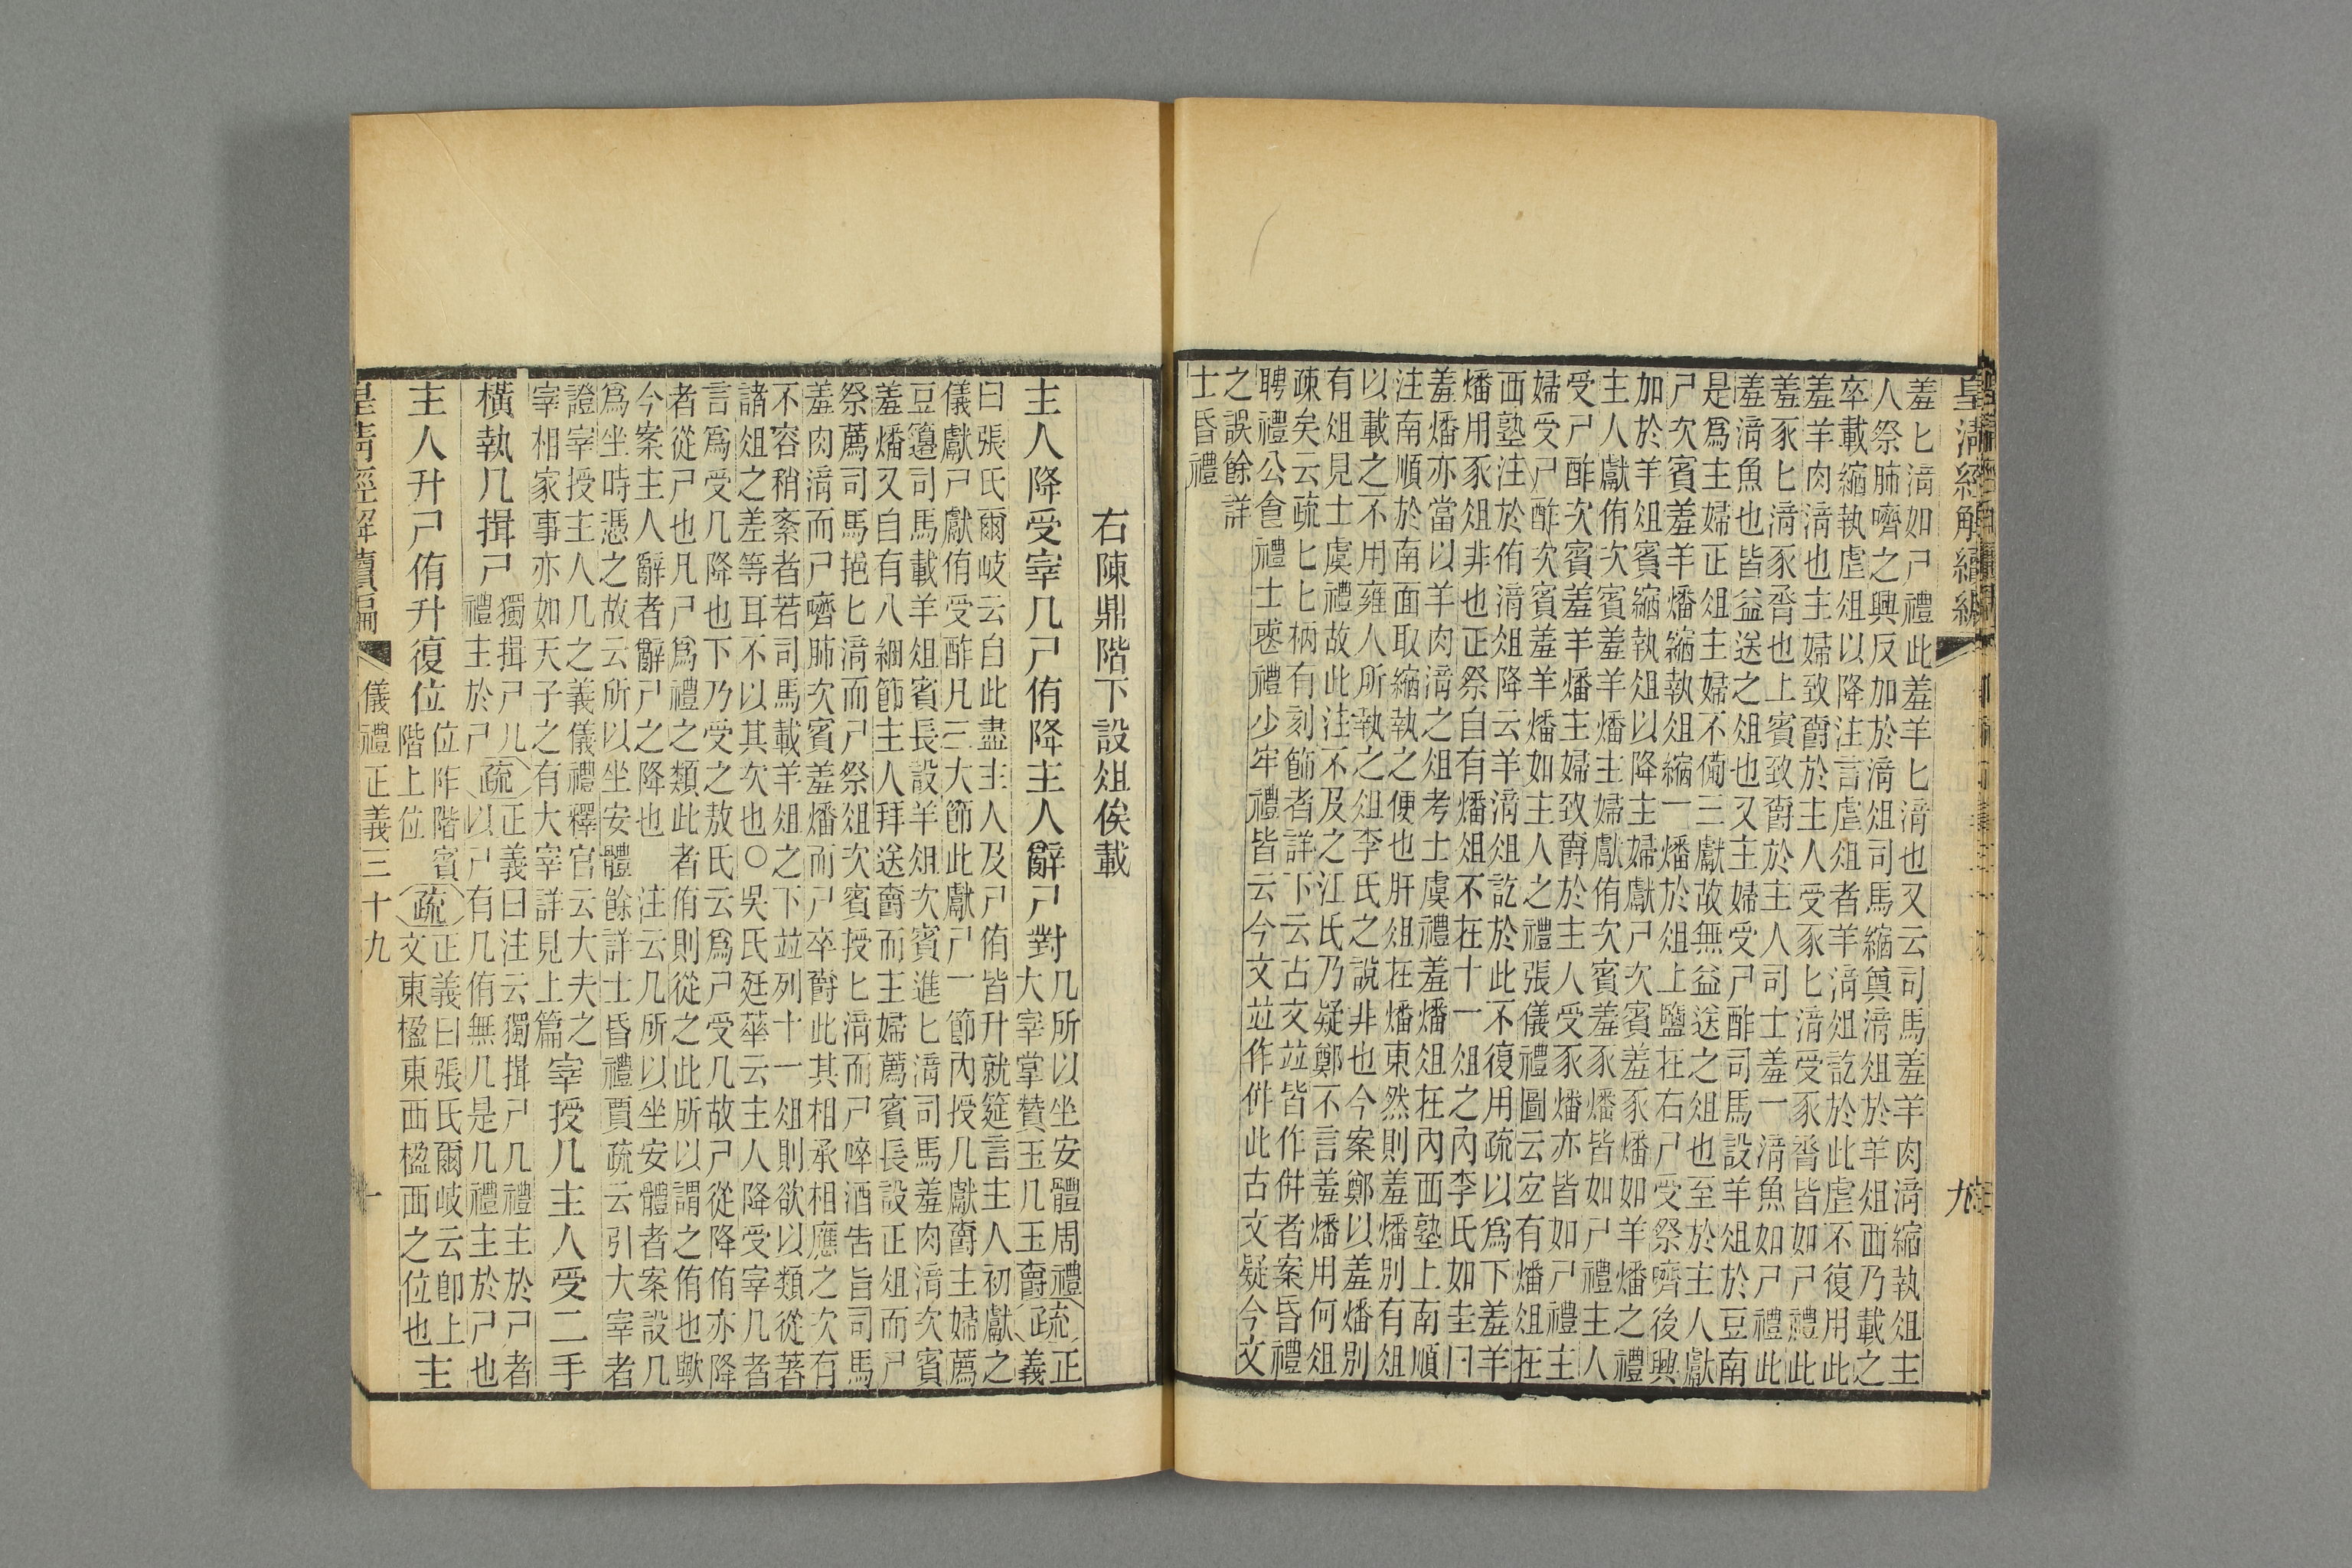 皇清經解續編
九
羞匕湆如尸禮此羞羊匕湆也又云司馬羞羊肉湆縮執俎主
人祭肺嚌之興反加於湆俎司馬縮奠湆俎於羊俎西乃載之
卒載縮執虛俎以降注言虛俎者羊湆俎訖於此虛不復用此
羞羊肉湆也主婦致爵於主人受豕匕湆受豕脀皆如尸禮此
羞豕匕湆豕脀也上賓致爵於主人司士羞一湆魚如尸禮此
羞湆魚也皆益送之俎也又主婦受尸酢司馬設羊俎於豆南
是爲主婦正俎主婦不備三獻故無益送之俎也至於主人獻
尸次賓羞羊燔縮執俎縮一燔於俎上鹽在右尸受祭嚌後興
加於羊俎賓縮執俎以降主婦獻尸次賓羞豕燔如羊燔之禮
主人獻侑次賓羞羊燔主婦獻侑次賓羞豕燔皆如尸禮主人
受尸酢次賓羞羊燔主婦致爵於主人受豕燔亦皆如尸禮主
婦受尸酢次賓羞羊燔如主人之禮張儀禮圖云宐有燔俎在
西塾注於侑湆俎降云羊湆俎訖於此不復用疏以爲下羞羊
燔用豕俎非也正祭自有燔俎不在十一俎之內李氏如圭曰
羞燔亦當以羊肉湆之俎考士虞禮羞燔俎在內西塾上南順
注南順於南面取縮執之便也肝俎在燔東然則羞燔別有俎
以載之不用雍人所執之俎李氏之說非也今案鄭以羞燔別
有俎見士虞禮故此注不及之江氏乃疑鄭不言羞燔用何俎
疎矣云疏匕匕柄有刻飾者詳下云古文竝皆作併者案昏禮
聘禮公食禮士喪禮少牢禮皆云今文竝作併此古文疑今文
之誤餘詳
士昏禮
右陳鼎階下設俎俟載
主人降受宰几尸侑降主人辭尸對
几所以坐安體周禮
大宰掌贊玉几玉爵
疏
正
義
曰張氏爾岐云自此盡主人及尸侑皆升就筵言主人初獻之
儀獻尸獻侑受酢凡三大節此獻尸一節內授几獻爵主婦薦
豆籩司馬載羊俎賓長設羊俎次賓進匕湆司馬羞肉湆次賓
羞燔又自有八細節主人拜送爵而主婦薦賓長設正俎而尸
祭薦司馬挹匕湆而尸祭俎次賓授匕湆而尸啐酒告旨司馬
羞肉湆而尸嚌肺次賓羞燔而尸卒爵此其相承相應之次有
不容稍紊者若司馬載羊俎之下竝列十一俎則欲以類從著
諸俎之差等耳不以其次也○吳氏廷華云主人降受宰几者
言爲受几降也下乃受之敖氏云爲尸受几故尸從降侑亦降
者從尸也凡尸爲禮之類此者侑則從之此所以謂之侑也歟
今案主人辭者辭尸之降也　注云几所以坐安體者案設几
爲坐時憑之故云所以坐安體餘詳士昏禮賈疏云引大宰者
證宰授主人几之義儀禮釋官云大夫之
宰相家事亦如天子之有大宰詳見上篇
宰授几主人受二手
橫執几揖尸
獨揖尸几
禮主於尸
疏
正義曰注云獨揖尸几禮主於尸者
以尸有几侑無几是几禮主於尸也
主人升尸侑升復位
位阼階賓
階上位
疏
正義曰張氏爾岐云卽上
文東楹東西楹西之位也
主
皇清經解續編
儀禮正義三十九